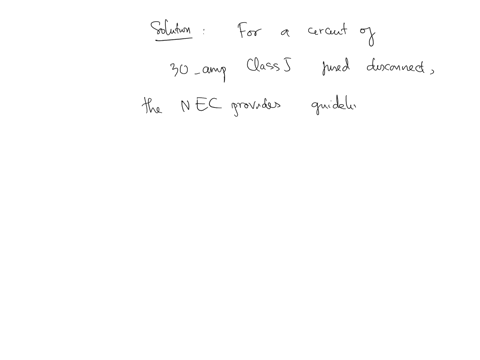 Solution : For a circuit of
30-amp Class J fused disconnect,
the NEC provides guideli